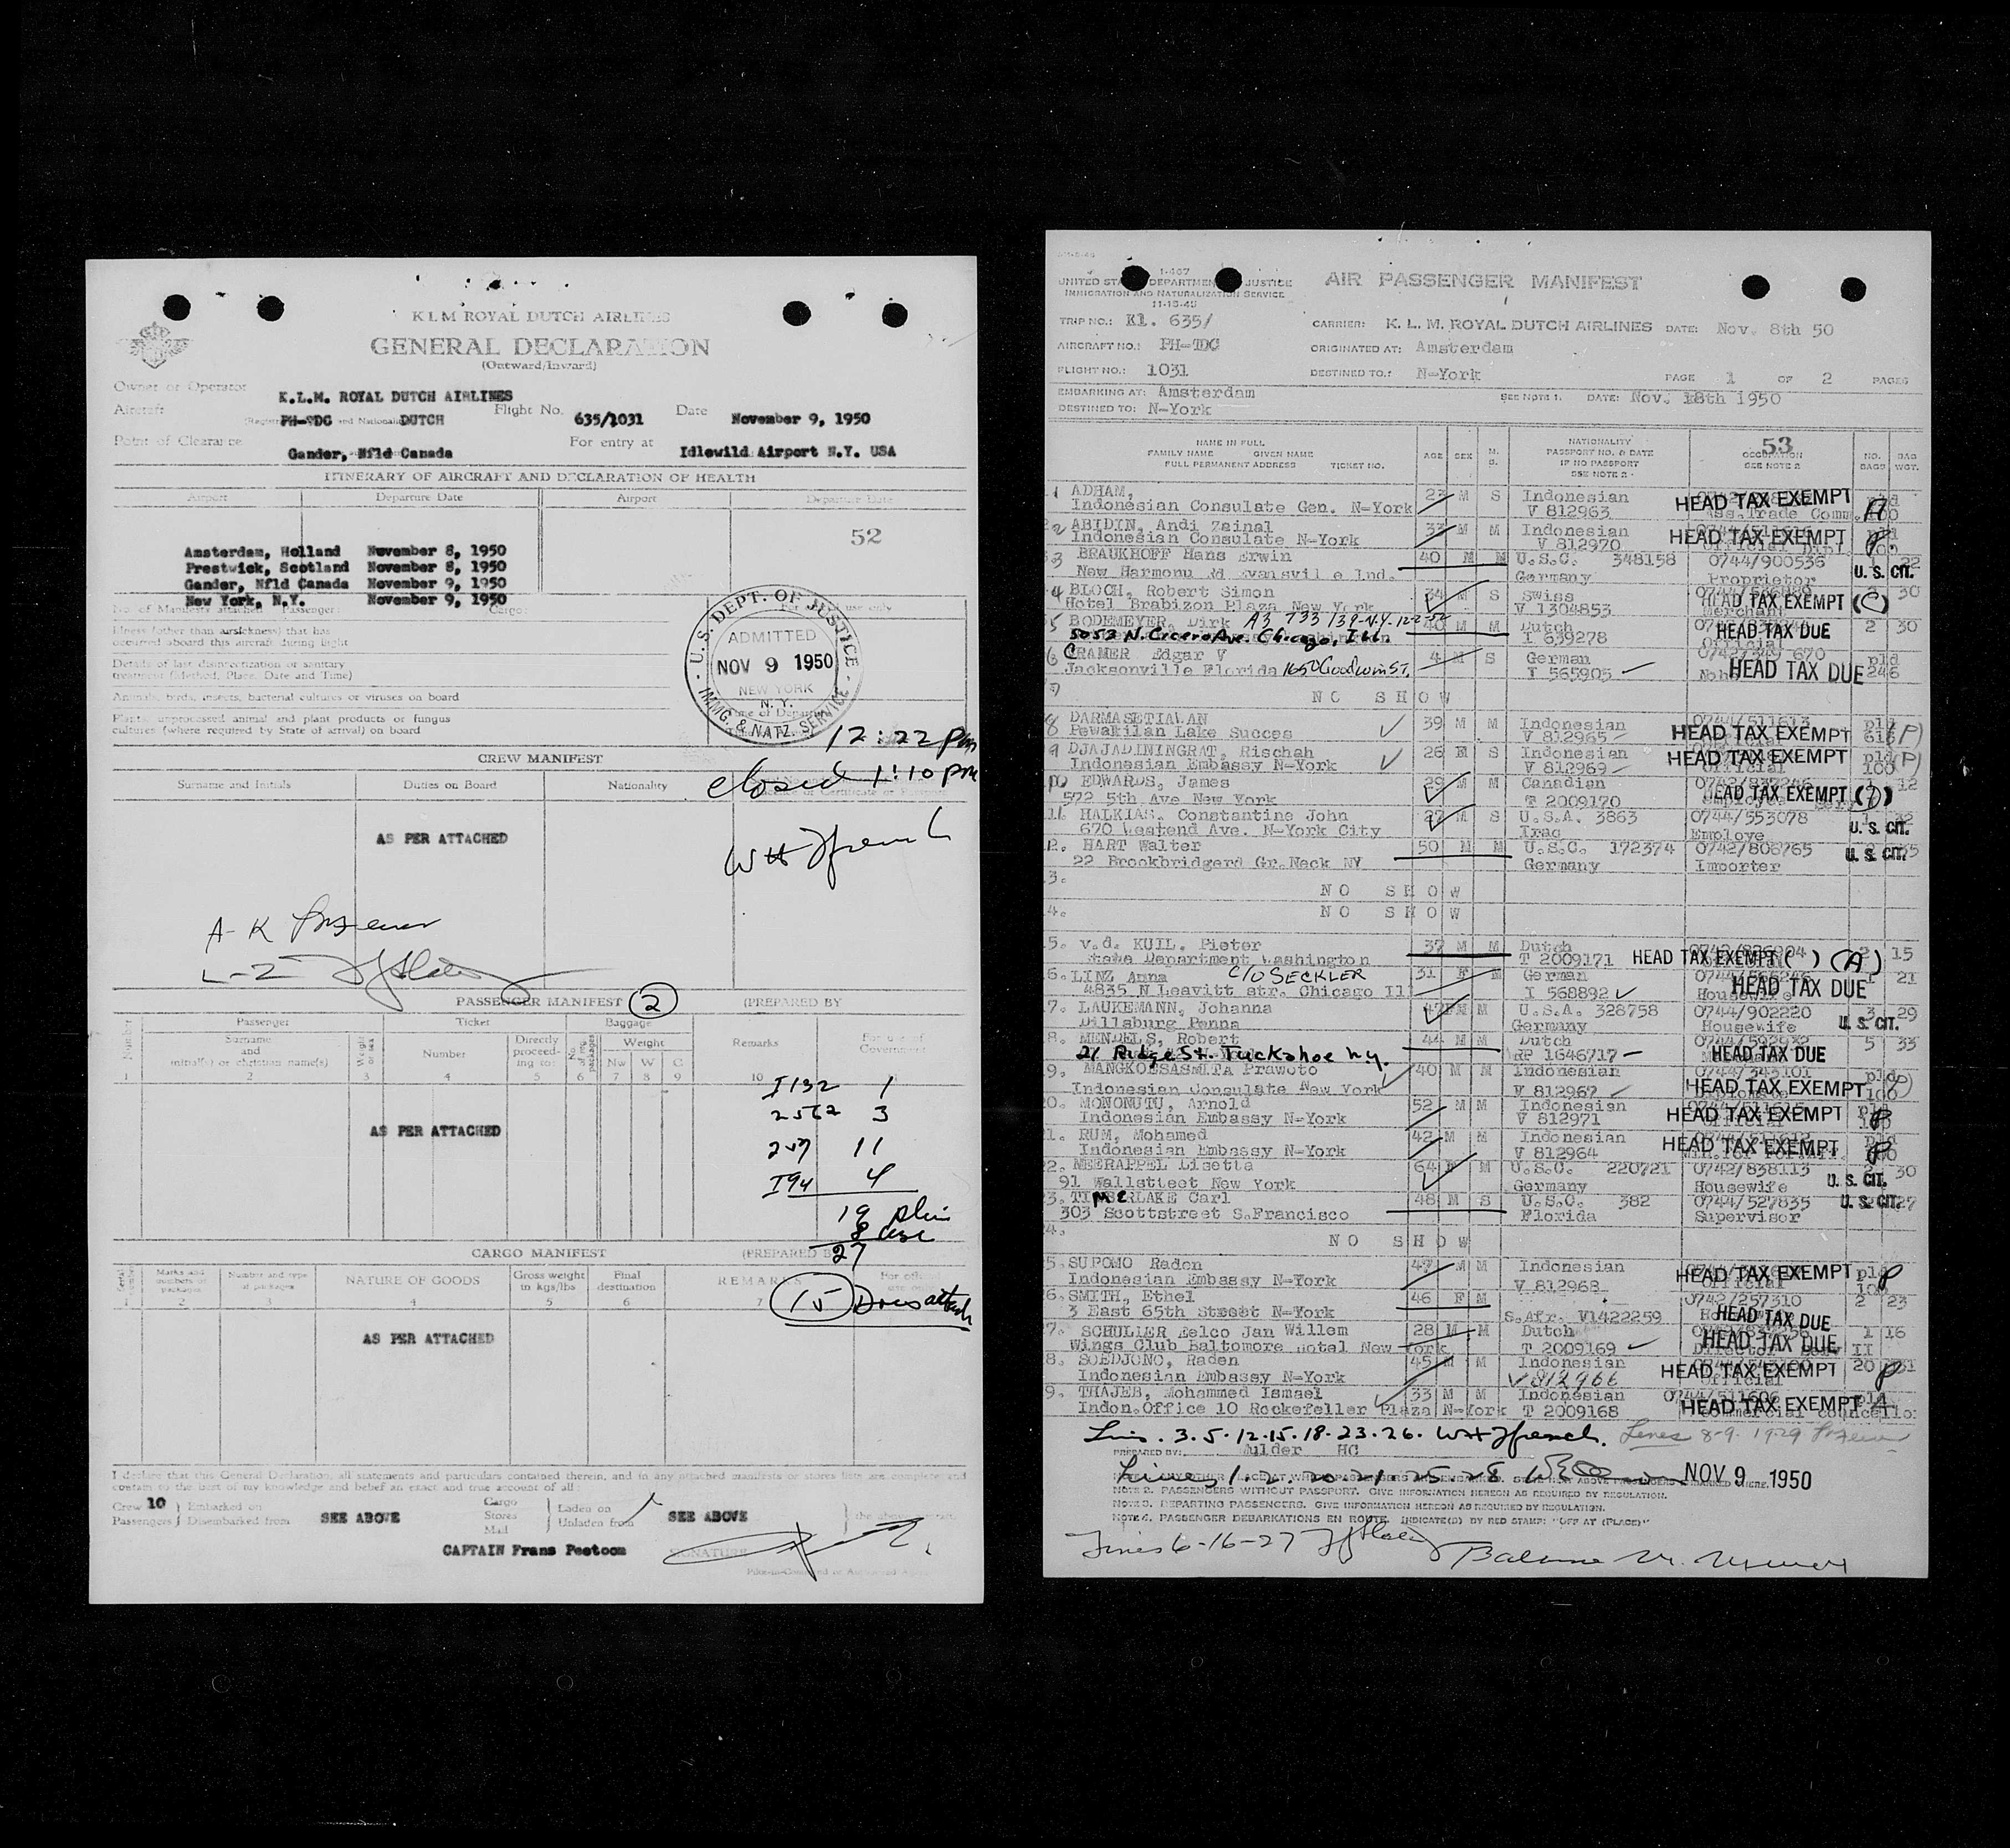 K L M ROYAL DUTCH AIRLINES
GENERAL DECLARATION
(Outward/Inward)
Owner or Operator K.L.M. ROYAL DUTCH AIRLINES
Aircraft PH-TDG DUTCH Flight No. 635/1031 Date November 9, 1950
Point of Clearance Gander, Nfld Canada For entry at Idlewild Airport N.Y. USA
ITINERARY OF AIRCRAFT AND DECLARATION OF HEALTH
Airport Departure Date Airport Departure Date
52
Amsterdam, Holland November 8, 1950
Prestwick, Scotland November 8, 1950
Gander, Nfld Canada November 9, 1950
New York, N.Y. November 9, 1950
No. of Manifests attached Passenger: Cargo:
Illness (other than airsickness) that has
occurred aboard this aircraft during flight
Details of last disinsectization or sanitary
treatment (Method, Place, Date and Time)
Animals, birds, insects, bacterial cultures or viruses on board
Plants, unprocessed animal and plant products or fungus
cultures (where required by State of arrival) on board
U.S. DEPT. OF JUSTICE
ADMITTED
NOV 9 1950
NEW YORK
N.Y.
IMMG. & NATZ. SERVICE
12:22 pm
closed 1:10 pm
CREW MANIFEST
Surname and Initials Duties on Board Nationality
AS PER ATTACHED
W H French
A-K
L-2
PASSENGER MANIFEST 2 (PREPARED BY
Number Passenger Ticket Baggage Remarks For use of Government
Surname and initial(s) or christian name(s) Number Directly proceeding to: Weight
Nw W C
1 2 3 4 5 6 7 8 9 10
I132 1
2562 3
257 11
I94 4
AS PER ATTACHED
19
8
27
CARGO MANIFEST (PREPARED BY
Marks and numbers of packages Number and type of packages NATURE OF GOODS Gross weight in kgs/lbs Final destination REMARKS
1 2 3 4 5 6 7
15
AS PER ATTACHED
I declare that this General Declaration, all statements and particulars contained therein, and in any attached manifests or stores lists are complete and
contain to the best of my knowledge and belief an exact and true account of all:
Crew 10 Embarked on Cargo Laden on
Passengers Disembarked from SEE ABOVE Stores Unladen from SEE ABOVE the above
Mail
CAPTAIN Frans Peetoom SIGNATURE
I-407
UNITED STATES DEPARTMENT OF JUSTICE
IMMIGRATION AND NATURALIZATION SERVICE
11-15-45
AIR PASSENGER MANIFEST
TRIP NO.: Kl. 635/ CARRIER: K. L. M. ROYAL DUTCH AIRLINES DATE: Nov. 8th 50
AIRCRAFT NO.: PH-TDG ORIGINATED AT: Amsterdam
FLIGHT NO.: 1031 DESTINED TO.: N-York PAGE 1 OF 2 PAGES
EMBARKING AT: Amsterdam SEE NOTE 1. DATE: Nov. 18th 1950
DESTINED TO: N-York
NAME IN FULL
FAMILY NAME GIVEN NAME
FULL PERMANENT ADDRESS TICKET NO. AGE SEX M. S. NATIONALITY PASSPORT NO. & DATE IF NO PASSPORT SEE NOTE 2 53 OCCUPATION SEE NOTE 2 NO. BAGS BAG WGT.
1 ADHAM, 23 M S Indonesian HEAD TAX EXEMPT
Indonesian Consulate Gen. N-York V 812963 Ass. Trade Comm. 100
2 ABIDIN, Andi Zainal 33 M M Indonesian
Indonesian Consulate N-York V 812970 HEAD TAX EXEMPT
3 BRAUKHOFF Hans Erwin 40 M M U.S.C. 348158 0744/900536 22
New Harmonu Rd Evansville Ind. Germany Proprietor U.S. CIT.
4 BLOCH, Robert Simon 34 M S Swiss 30
Hotel Brabizon Plaza New York V 1304853 HEAD TAX EXEMPT (C)
5 BODEMEYER, Dirk 40 M M Dutch 2 30
5053 N. Cicero Ave. Chicago, Ill I 639278 HEAD TAX DUE
6 CRAMER Edgar V 4 M S German pld
Jacksonville Florida 1650 Goodwin St. I 565905 HEAD TAX DUE 246
7 NO SHOW
8 DARMASETIAWAN 39 M M Indonesian 0744/511613 pld
Pewakilan Lake Succes V 812965 HEAD TAX EXEMPT (P)
9 DJAJADININGRAT, Rischah 26 M S Indonesian HEAD TAX EXEMPT pld (P)
Indonesian Embassy N-York V 812969 Official 100
10 EDWARDS, James 29 M M Canadian 12
572 5th Ave New York T 2009170 HEAD TAX EXEMPT
11 HALKIAS, Constantine John 27 M S U.S.A. 3863 0744/553078
670 Westend Ave. N-York City Iraq Employe U.S. CIT.
12. HART Walter 50 M M U.S.C. 172374 0742/806765
22 Brookbridgerd Gr.Neck NY Germany Importer U.S. CIT.
3. NO SHOW
4. NO SHOW
5. v.d. KUIL. Pieter 37 M M Dutch 15
State Department Washington T 2009171 HEAD TAX EXEMPT ( ) (A)
6. LINZ Anna C/O SECKLER 31 F M German 21
4835 N Leavitt str. Chicago Ill I 568892 HEAD TAX DUE
7. LAUKEMANN, Johanna 47 F M U.S.A. 328758 0744/902220 3 29
Dillsburg Penna Germany Housewife U.S. CIT.
8. MENDELS, Robert 44 M M Dutch 5 33
21 Ridge St. Tuckahoe N.Y. RP 1646717 HEAD TAX DUE
9. MANGKOESASMITA Prawoto 40 M M Indonesian pld
Indonesian Consulate New York V 812967 HEAD TAX EXEMPT 100
20. MONONUTU, Arnold 52 M M Indonesian
Indonesian Embassy N-York V 812971 HEAD TAX EXEMPT P
1. RUM, Mohamed 42 M M Indonesian
Indonesian Embassy N-York V 812964 HEAD TAX EXEMPT P
22. MEERAPPEL Lisetta 64 F M U.S.C. 220721 0742/838113 30
91 Wallstteet New York Germany Housewife U.S. CIT.
3. TIMBERLAKE Carl 48 M S U.S.C. 382 0744/527835 27
303 Scottstreet S.Francisco Florida Supervisor U.S. CIT.
4. NO SHOW
5. SUPOMO Raden 47 M M Indonesian
Indonesian Embassy N-York V 812968 HEAD TAX EXEMPT P
6. SMITH, Ethel 46 F M 0742/257310 2 23
3 East 65th Street N-York S.Afr. V1422259 HEAD TAX DUE
7. SCHULIER Eelco Jan Willem 28 M M Dutch 1 16
Wings Club Baltomore Hotel New York T 2009169 HEAD TAX DUE
8. SOEDJONO, Raden 45 M M Indonesian 20
Indonesian Embassy N-York V812966 HEAD TAX EXEMPT P
9. THAJEB, Mohammed Ismael 33 M M Indonesian 0744/511606
Indon.Office 10 Rockefeller Plaza N-York T 2009168 HEAD TAX EXEMPT
3.5.12.15.18.23.26. W H French. Lines 8-9-19-29
PREPARED BY: Mulder HC
Lines 1.2.20.21.25.28 NOV 9 1950
NOTE 2. PASSENGERS WITHOUT PASSPORT. GIVE INFORMATION HEREON AS REQUIRED BY REGULATION.
NOTE 3. DEPARTING PASSENGERS. GIVE INFORMATION HEREON AS REQUIRED BY REGULATION.
NOTE 4. PASSENGER DEBARKATIONS EN ROUTE. INDICATE(S) BY RED STAMP: "OFF AT (PLACE)"
Lines 6-16-27